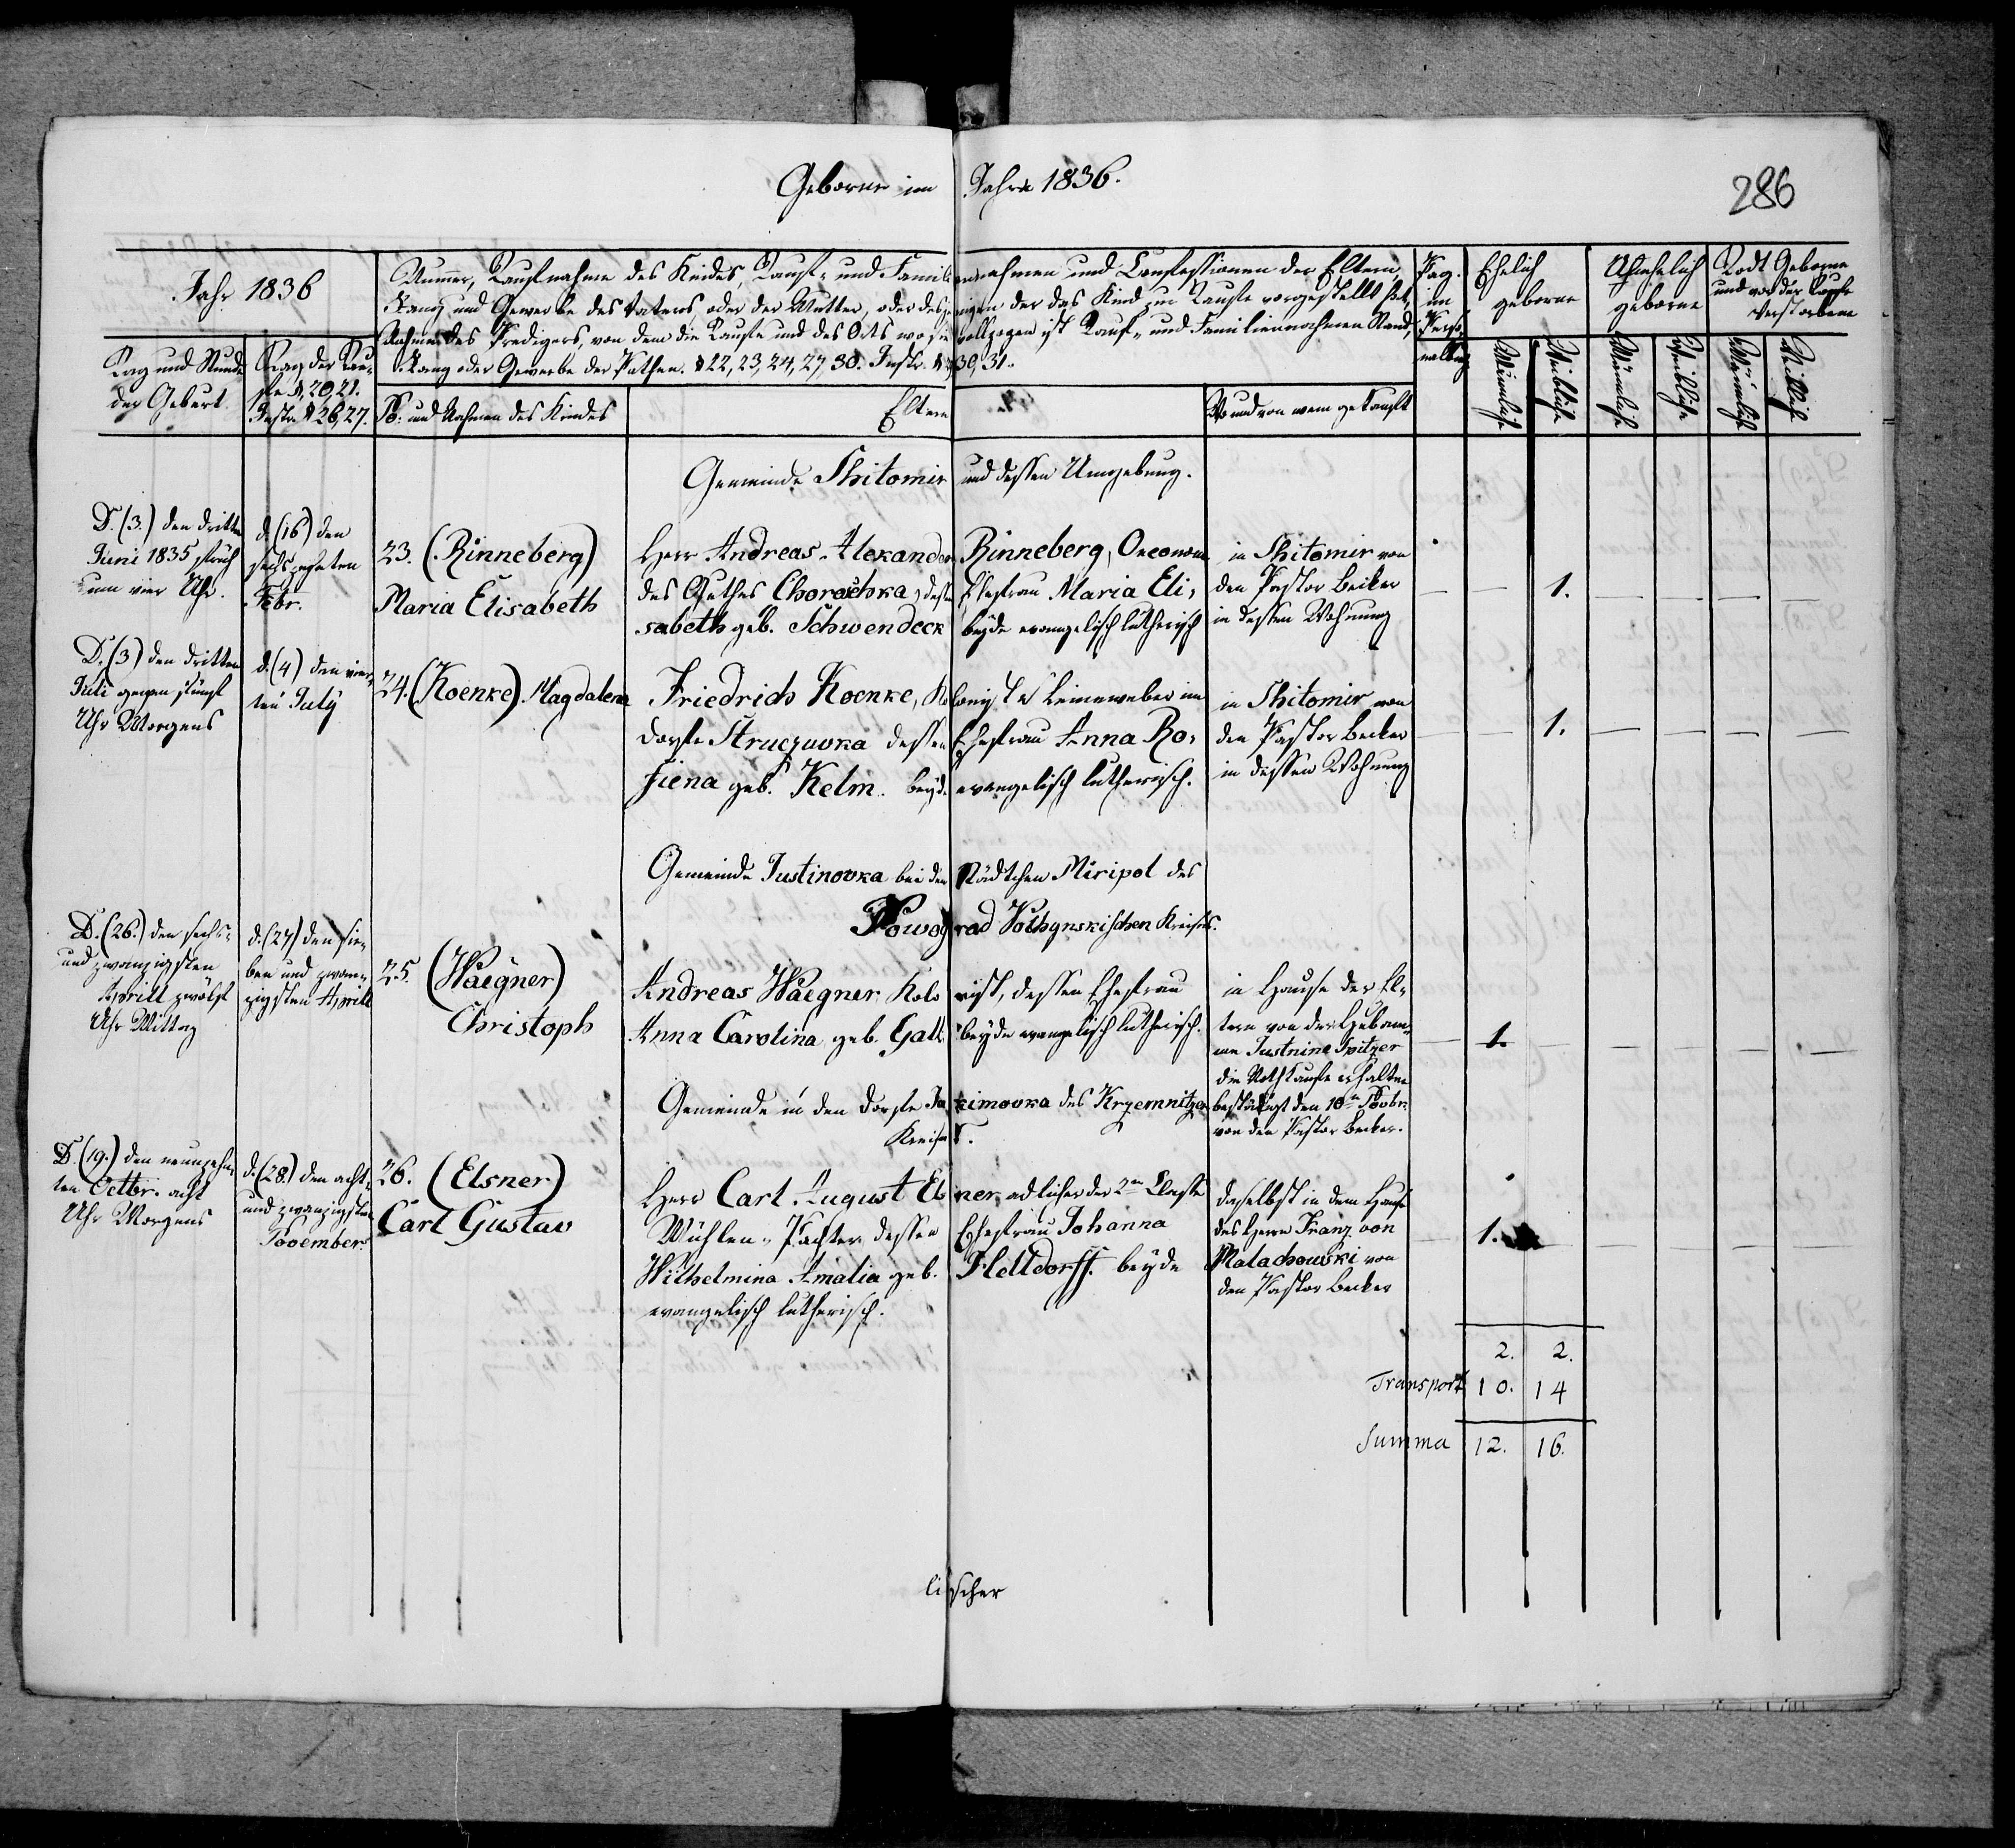 Geborne im Jahre 1836.
286
Jahr 1836
Numer, Taufnahme des Kindes, Tauf- und Familiennahmen und Confessionen der Eltern,
Rang und Gewerbe des Vaters, oder der Mutter, oder desjenigen der das Kind zur Taufe vorgestellt hat,
Nahme des Predigers, von dem die Taufe und des Orts wo sie vollzogen ist Tauf- und Familiennahmen Stand,
Rang oder Gewerbe der Pathen. § 22, 23, 24, 27, 30. Instr. § 30, 31.
Pag. im Perso- nalbuch
Ehelich geborne
Unehelich geborne
Todt Geborne und vor der Taufe verstorbene
Tag und Stunde der Geburt
Tag der Tau- fe § 20, 21. Instr. § 26, 27.
No: und Nahmen des Kindes
Eltern
Wo und von wem getauft
Männlich
Weiblich
Männlich
Weiblich
Männlich
Weiblich
Gemeinde Shitomir und dessen Umgebung.
D. (3.) den dritten
Juni 1835 früh
um vier Uhr.
d. (16) den
sechszehnten
Febr.
23. (Rinneberg)
Maria Elisabeth
Herr Andreas Alexander Rinneberg, Oeconom
des Guthes Choroschka, dessen Ehefrau Maria Eli-
sabeth geb. Schwendeck beyde evangelisch lutherisch
in Shitomir von
den Pastor Becker
in dessen Wohnung
1.
D. (3) den dritten
Juli gegen fünf
Uhr Morgens
d. (4) den vier-
ten July
24. (Koenke) Magdalena
Friedrich Koenke, Kolonist u Leineweber im
Dorfe Struczuvka dessen Ehefrau Anna Ro-
siena geb. Kelm. beyde evangelisch lutherisch.
in Shitomir von
den Pastor Becker
in dessen Wohnung
1.
Gemeinde Justinovka bei den Städtchen Miripol des
Nowograd Volhynskischen Kreises.
D. (26.) den sechs-
und zwanzigsten
Aprill zwölf
Uhr Mittag
d. (27) den sie-
ben und zwan-
zigsten Aprill
25. (Waegner)
Christoph
Andreas Waegner Kolonist, dessen Ehefrau
Anna Carolina geb. Gatt. beyde evangelisch lutherisch.
in Hause der El-
tern von der Hebam-
me Justnine Spitzer
die Nothtaufe erhalten
bestätigt den 10ten Novbr.
von den Pastor Becker.
1.
Gemeinde in den Dorfe Jakimovka des Krzemnitzer
Kreises.
D. (19.) den neunzehn-
ten Octbr. acht
Uhr Morgens
d. (28.) den acht-
und zwanzigsten
November.
26. (Elsner)
Carl Gustav
Herr Carl August Elsner adlicher der 2ten Classe
Mühlen-Pachter dessen Ehefrau Johanna
Wilhelmina Amalia geb. Helldorff. beyde
evangelisch lutherisch.
daselbst in dem Hause
des Herrn Franz von
Malachowski von
den Pastor Becker
1.
2. 2.
Transport 10. 14
Summa 12. 16.
lischer